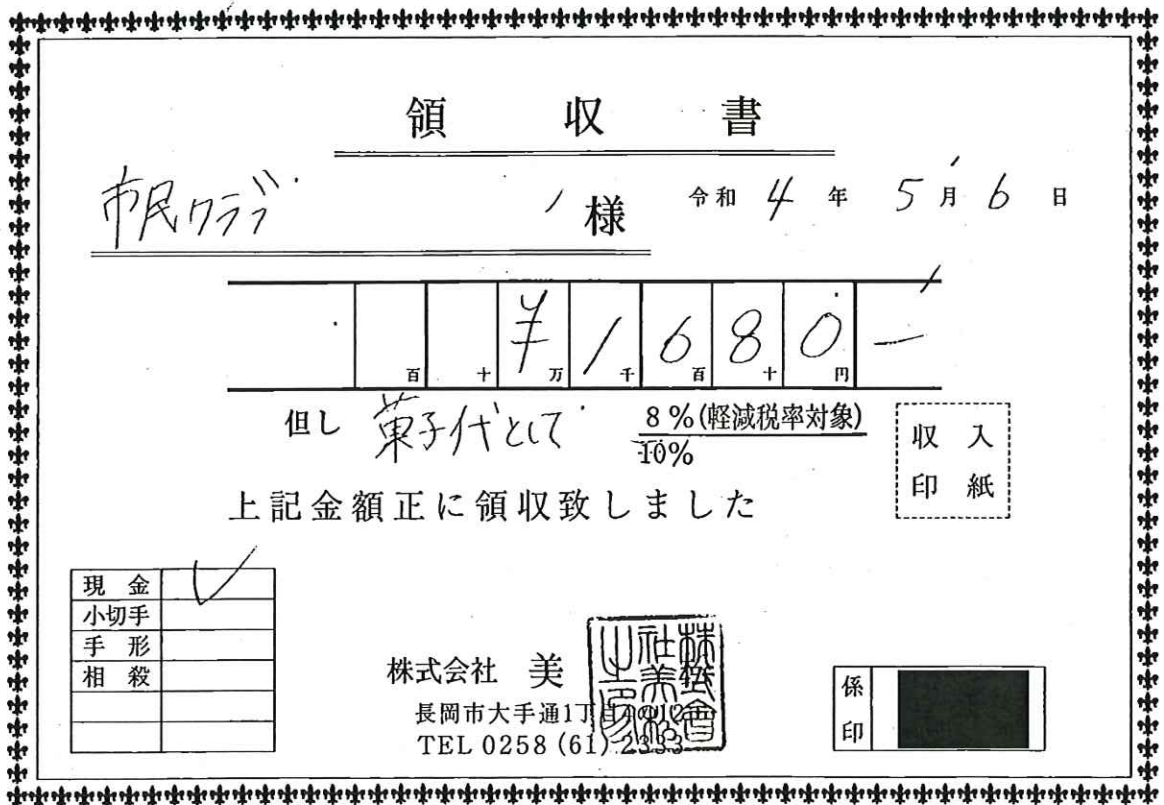 領収書
市民クラブ 様 令和 4 年 5 月 6 日
¥1680-
百 十 万 千 百 十 円
但し 菓子代として 8%(軽減税率対象)
10%
収入
印紙
上記金額正に領収致しました
現金 ✓
小切手
手形
相殺
株式会社 美
長岡市大手通1丁目
TEL 0258 (61) 2333
係
印